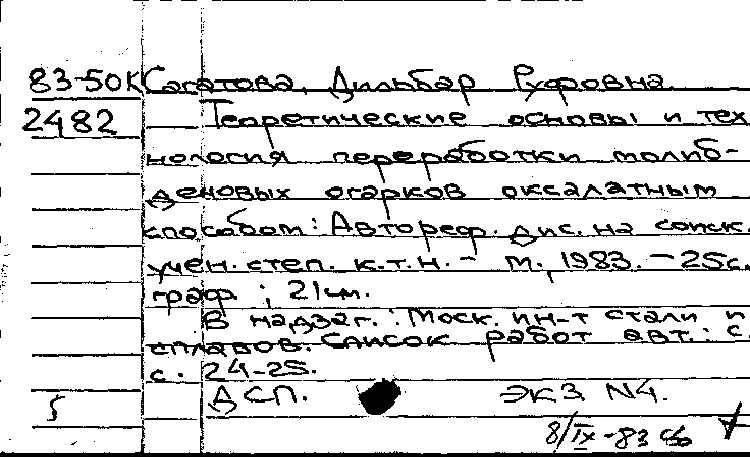 83-50К Сагатова, Дильбар Руфовна.
2482 Теоретические основы и тех
нология переработки молиб-
деновых огарков оксалатным
способом: Автореф. дис. на соиск.
учен. степ. к.т.н. - м., 1983. - 25с.
граф. ; 21см.
В надзаг.: Моск. ин-т стали и
сплавов. Список работ авт.: с.
с. 24-25.
ДСП. ЭКЗ. N4.
8/IX-83